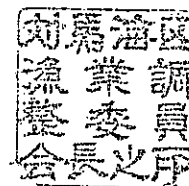 対馬海区
漁業調
整委員
会長之印